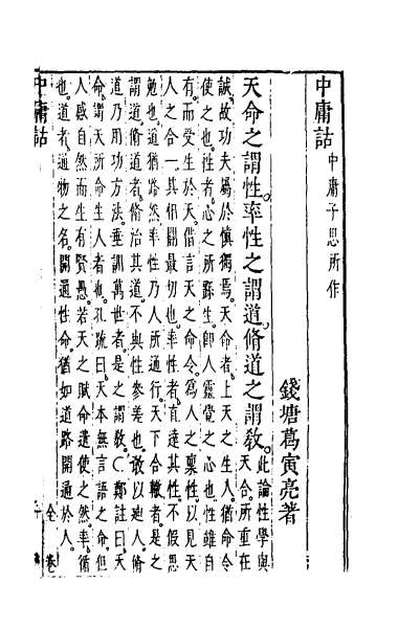 中庸詁 中庸子思所作
錢塘葛寅亮著
天命之謂性。率性之謂道。脩道之謂敎。此論性學與
天合。所重在
誠。故功夫屬於愼獨焉。天命者。上天之生人。猶命令
使之也。性者。心之所繇生。卽人靈覺之心也。性雖自
有。而受生於天。借言天之命令。爲人之稟性。以見天
人之合一。其相關最切也。率性者。直達其性。不假思
勉也。道猶路然。率性乃人所通行。天下合轍者。是之
謂道。脩道者。脩治其道。不與性參差也。敎以廸人。脩
道乃用功方法。垂訓萬世者。是之謂敎。〇鄭註曰。天
命。謂天所命生人者也。孔疏曰。天本無言語之命。但
人感自然而生。有賢愚。若天之賦命遣使之然。率。循
也。道者。通物之名。開通性命。猶如道路開通於人。
中庸詁
全卷